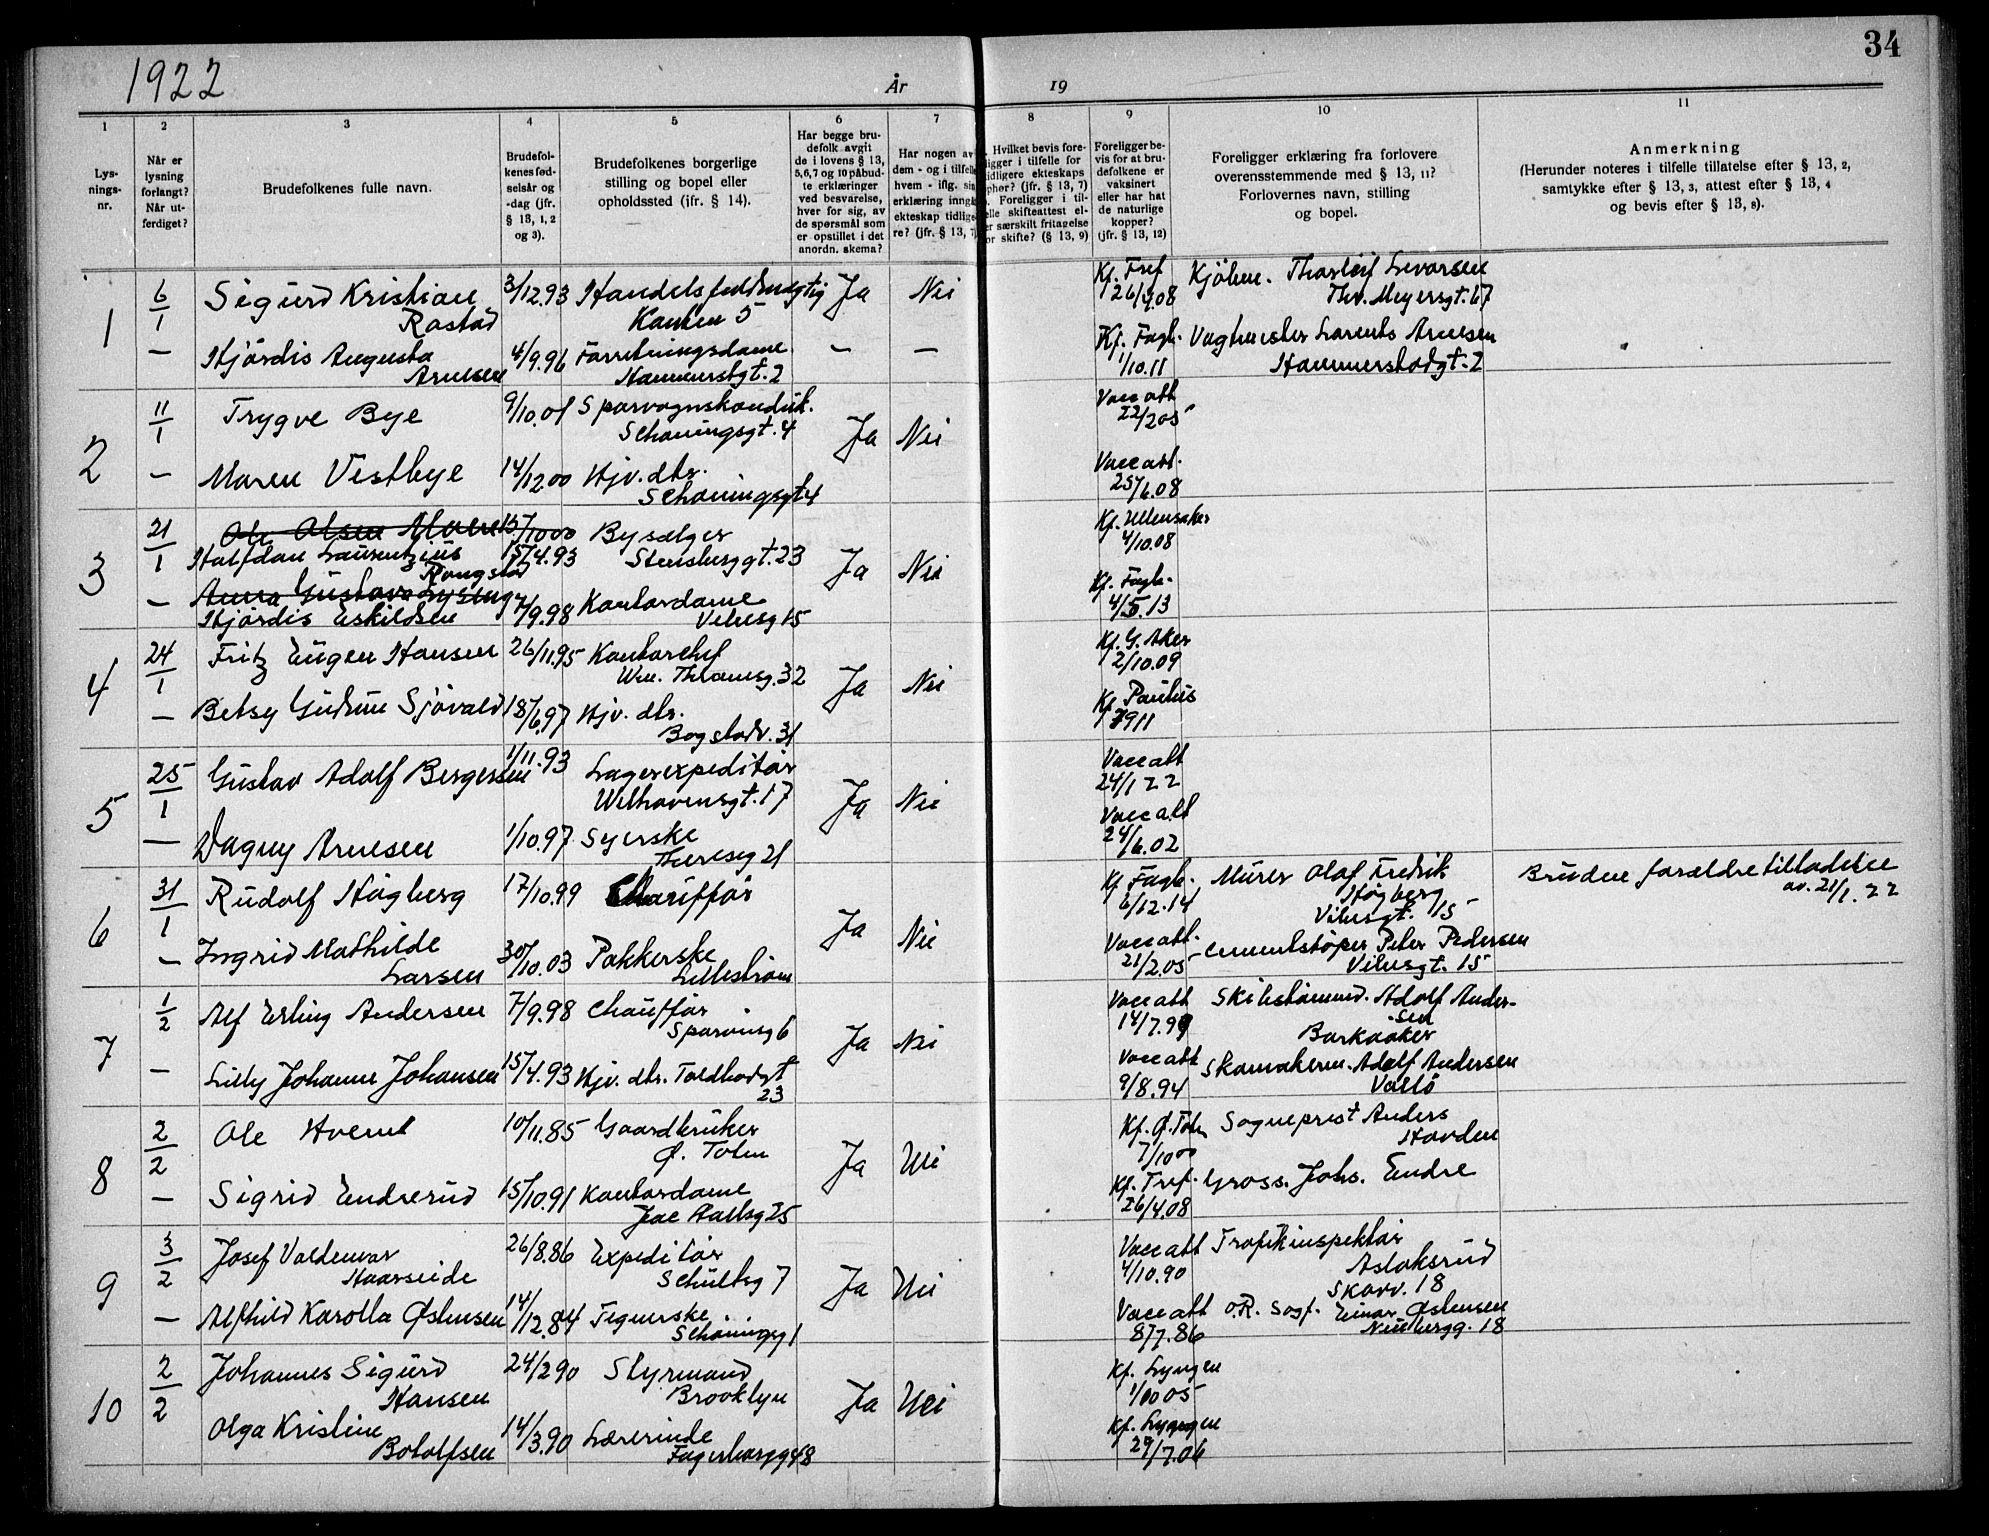 34
1922
År
19
1
2
3
4
5
6
7
8
9
10
11
Lys-
nings-
nr.
Når er
lysning
forlangt?
Når ut-
ferdiget?
Brudefolkenes fulle navn.
Brudefol-
kenes fød-
selsår og
-dag (jfr.
§ 13, 1, 2
og 3).
Brudefolkenes borgerlige
stilling og bopel eller
opholdssted (jfr. § 14).
Har begge bru-
defolk avgit
de i lovens § 13,
5, 6, 7 og 10 påbud-
te erklæringer
ved besvarelse,
hver for sig, av
de spørsmål som
er opstillet i det
anordn. skema?
Har nogen av
dem - og i tilfelle
hvem - iflg. sin
erklæring inngå
ekteskap tidlige-
re? (jfr. § 13, 7)
Hvilket bevis fore-
ligger i tilfelle for
tidligere ekteskaps
ophør? (jfr. § 13, 7)
Foreligger i til-
felle skifteattest el-
er særskilt fritagelse
for skifte? (§ 13, 9)
Foreligger be-
vis for at bru-
defolkene er
vaksinert
eller har hat
de naturlige
kopper?
(jfr. § 13, 12)
Foreligger erklæring fra forlovere
overensstemmende med § 13, 11?
Forlovernes navn, stilling
og bopel.
Anmerkning
(Herunder noteres i tilfelle tillatelse efter § 13, 2,
samtykke efter § 13, 3, attest efter § 13, 4
og bevis efter § 13, 8).
1
6/1
Sigurd Kristian
Rastad
3/12.93
Handelsfuldmægtig
5
Ja
Nei
Kf. Tref
26/4.08
Kjøbm. Thorleif Levorsen
Thv. Meyersgt. 67
—
Hjördis Augusta
Arnesen
4/9.96
Forretningsdame
Hammerstgt. 2
—
—
Kf. Fagb.
1/10.11
Vagtmester Laurents Arnesen
Hammerstadgt. 2
2
11/1
Trygve Bye
9/10.01
Sporvognskonduk.
Schøningsgt. 4
Ja
Nei
Vacc att
22/2 05
—
Maren Vestbye
14/12 00
Hjv. dtr.
Schøningsgt 4
Vacc att.
25/6.08
3
21/1
Ole Olsen
15/10 00
Halfdan Laurentzius
Rongstad
15/4.93
Bysælger
Stensberggt. 23
Ja
Nei
Kf. Ullensaker
4/10.08
—
Anna Gustava
Hjördis Eskildsen
7/9.98
Kontordame
Vibesg 15
Kf. Fagb.
4/5.13
4
24/1
Fritz Eugen Hansen
26/11.95
Kontorchef
Wm. Thranesg. 32
Ja
Nei
Kf. G. Aker
2/10.09
—
Betsy Gudrun Sjövald
18/6.97
Hjv. dtr.
Bogstadv. 31
Kf. Paulus
1911
5
25/1
Gustav Adolf Bergersen
1/11.93
Lagerexpeditör
Welhavensgt. 17
Ja
Nei
Vacc att
24/1 22
—
Dagny Arnesen
1/10.97
Syerske
Theresg 21
Vacc att
24/6.02
6
31/1
Rudolf Högberg
17/10.99
Chauffør
Ja
Nei
Kf Fagb.
6/12.14
Murer Olaf Fredrik
Högberg
Vibesgt. 15
Brudens forældre tilladelse
av. 21/1. 22
—
Ingrid Mathilde
Larsen
30/10.03
Pakkerske
Lilleström
Vacc att.
21/2.05
Cementstöper Peter Pedersen
Vibesgt. 15
7
1/2
Alf Erling Andersen
7/9.98
Chauffør
6
Ja
Nei
Vacc att
14/7.99
Adolf Ander-
sen
Barkaaker
—
Lilly Johanne Johansen
15/4.93
Hjv. dtr. Toldbodgt
23
Vacc att
9/8.94
Skomakerm. Adolf Andersen
Vallö
8
2/2
Ole Hveem
10/11.85
Gaardbruker
Ø. Toten
Ja
Nei
Kf. Ø. Toten
7/10 00
Sogneprest Anders
Hovden
—
Sigrid Endrerud
15/10.91
Kontordame
Jac Aallsg 25
Kf. Tref.
26/4.08
Gross. Johs. Endre
9
3/2
Josef Valdemar
Haarseide
26/8.86
Expeditör
Schultsg 7
Ja
Nei
Vacc att
4/10.90
Trafikinspektör
Aslaksrud
Skovv. 18
—
Alfhild Karolla Østensen
14/12.84
Tegnerske
Schöningsg 1
Vacc att
8/7.86
O.R. Sagf. Einar Østensen
Neubergg. 18
10
2/2
Johannes Sigurd
Hansen
24/2 90
Styrmand
Brooklyn
Ja
Nei
Kf. Lyngen
1/10 05
Olga Kristine
Botolfsen
14/3.90
Lærerinde
Fagerborgg 48
Kf. Lyngen
29/7.06